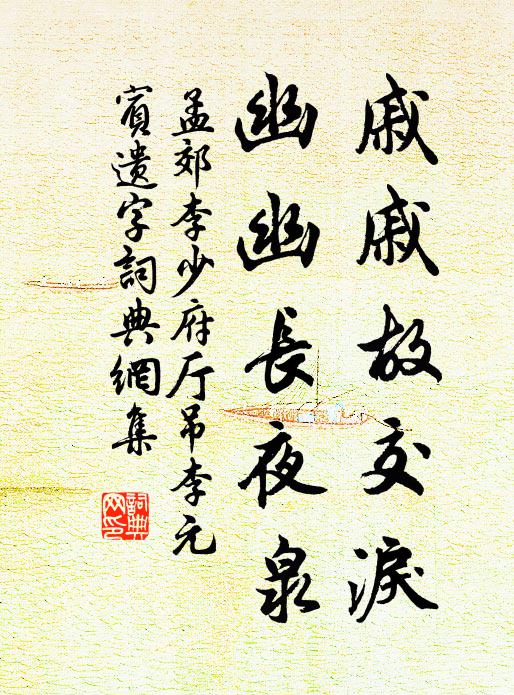 戚戚故交淚
幽幽長夜泉
孟郊李少府厅吊李元
賓遗字詞典網集
詞典
网印